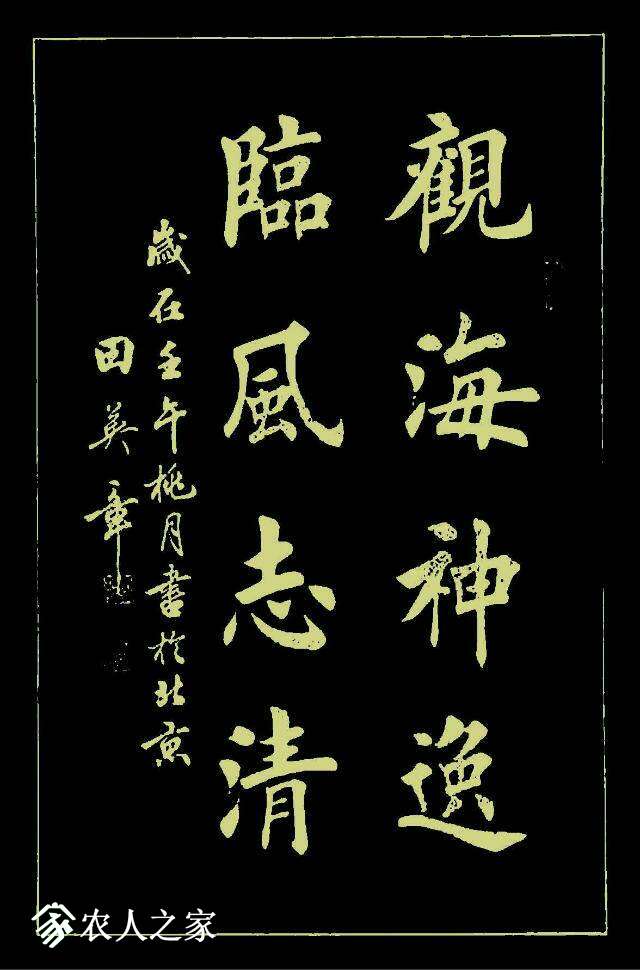 觀海神逸
臨風志清
歲在壬午桃月書於北京
田英章
农人之家